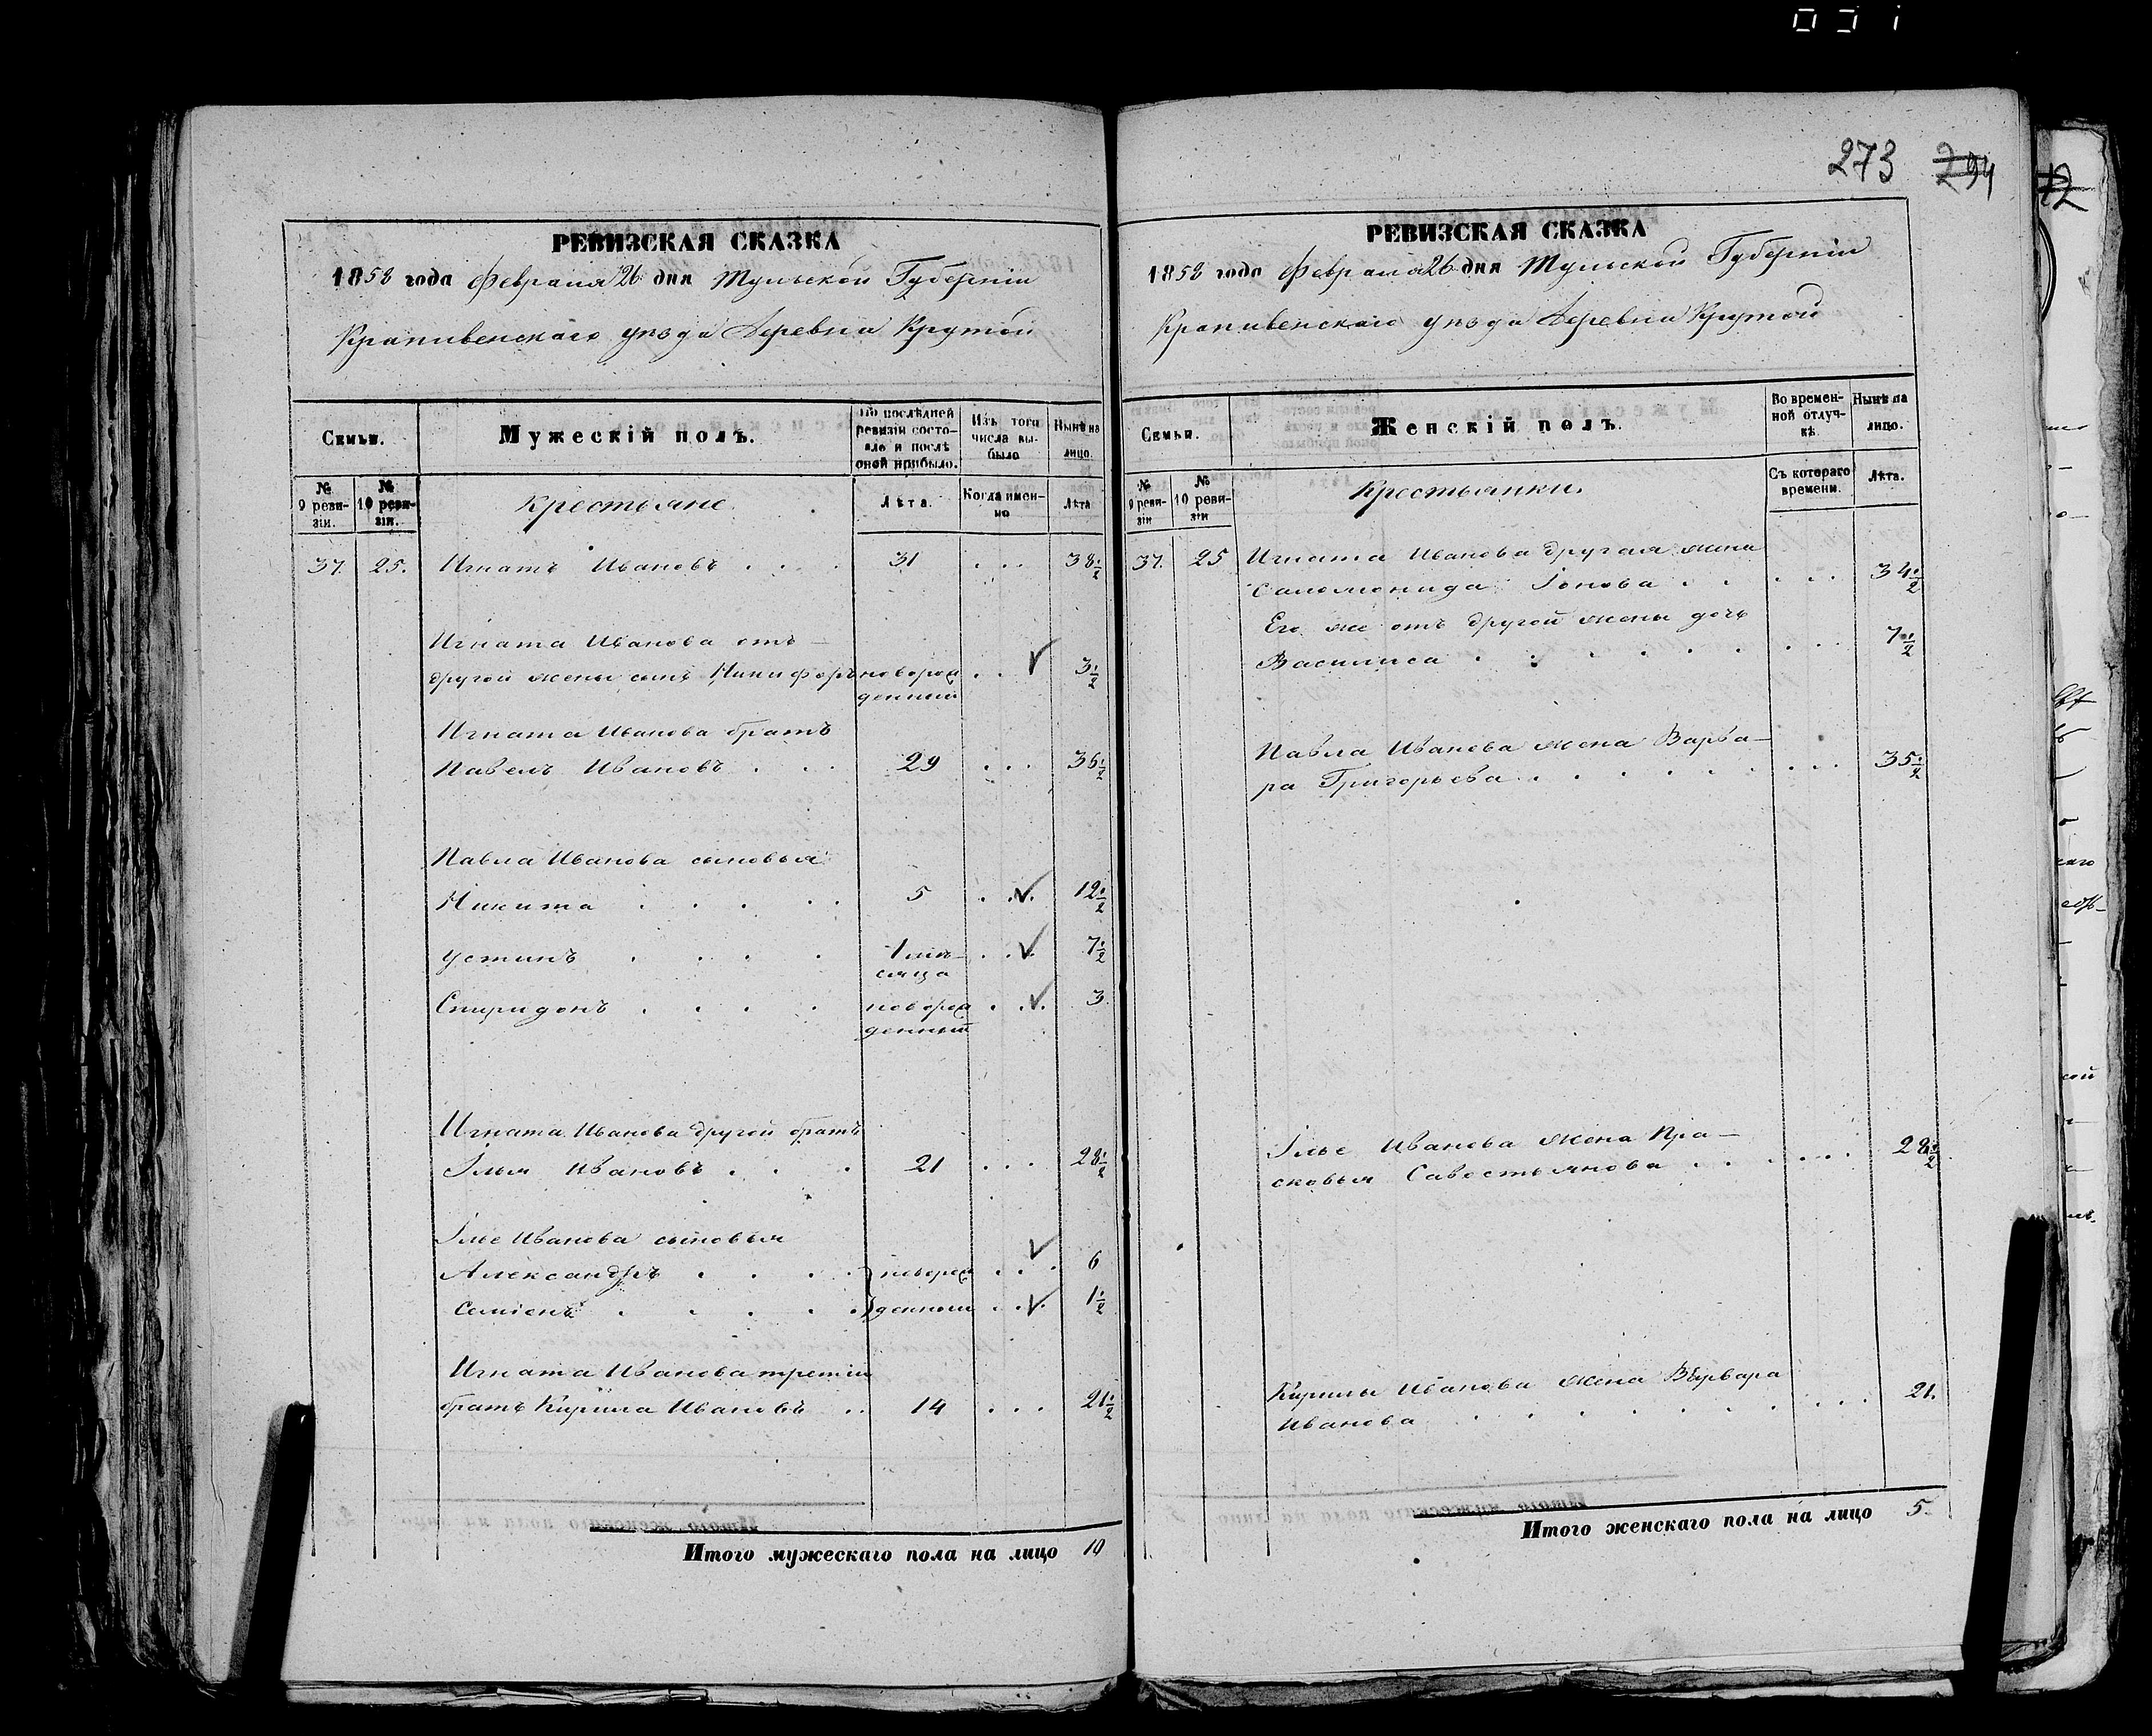 273 294
РЕВИЗСКАЯ СКАЗКА
1858 года Февраля 26 дня Тульской Губерніи
Крапивенскаго уѣзда Деревни Крутой
Семьи.
Мужескій полъ.
По послѣдней ревизіи состояло и послѣ оной прибыло.
Изъ того числа выбыло
Нынѣ на лицо.
№ 9 ревизіи.
№ 10 ревизіи.
Крестьяне
Лѣта.
Когда именно
Лѣта
37. 25. Игнатъ Ивановъ . . . 31 . . . 38 1/2
Игната Иванова отъ
другой жены сынъ Никифоръ новорож . . 3 1/2
денный
Игната Иванова братъ
Павелъ Ивановъ . . . 29 . . . 36 1/2
Павла Иванова сыновья
Никита . . . . . 5 . . . 12 1/2
Устинъ . . . . 1 мѣ- . . . 7 1/2
сяца
Спиридонъ . . . . новорож . . . 3.
денный
Игната Иванова другой братъ
Илья Ивановъ . . . 21 . . . 28 1/2
Илье Иванова сыновья
Александръ . . . . новорож . . . 6
Семіенъ . . . . . денныи . . . 1 1/2
Игната Иванова третій
братъ Кирила Ивановъ . . 14 . . . 21 1/2
Итого мужескаго пола на лицо 10
РЕВИЗСКАЯ СКАЗКА
1858 года Февраля 26 дня Тульской Губерніи
Крапивенскаго уѣзда Деревни Крутой
Семьи.
Женскій полъ.
Во временной отлучкѣ.
Нынѣ на лицо.
№ 9 ревизіи
№ 10 ревизіи
Крестьянки.
Съ котораго времени.
Лѣта.
37. 25 Игната Иванова другая жена
Саломонида Іонова . . . . . 34 1/2
Его же отъ другой жены дочь
Василиса . . . . . . . . . 7 1/2
Павла Иванова жена Варва-
ра Григорьева . . . . . . . . 35 1/2
Илье Иванова жена Пра-
сковья Савостьянова . . . . . . 28 1/2
Кирилы Иванова жена Варвара
Иванова . . . . . . . . . 21.
Итого женскаго пола на лицо 5